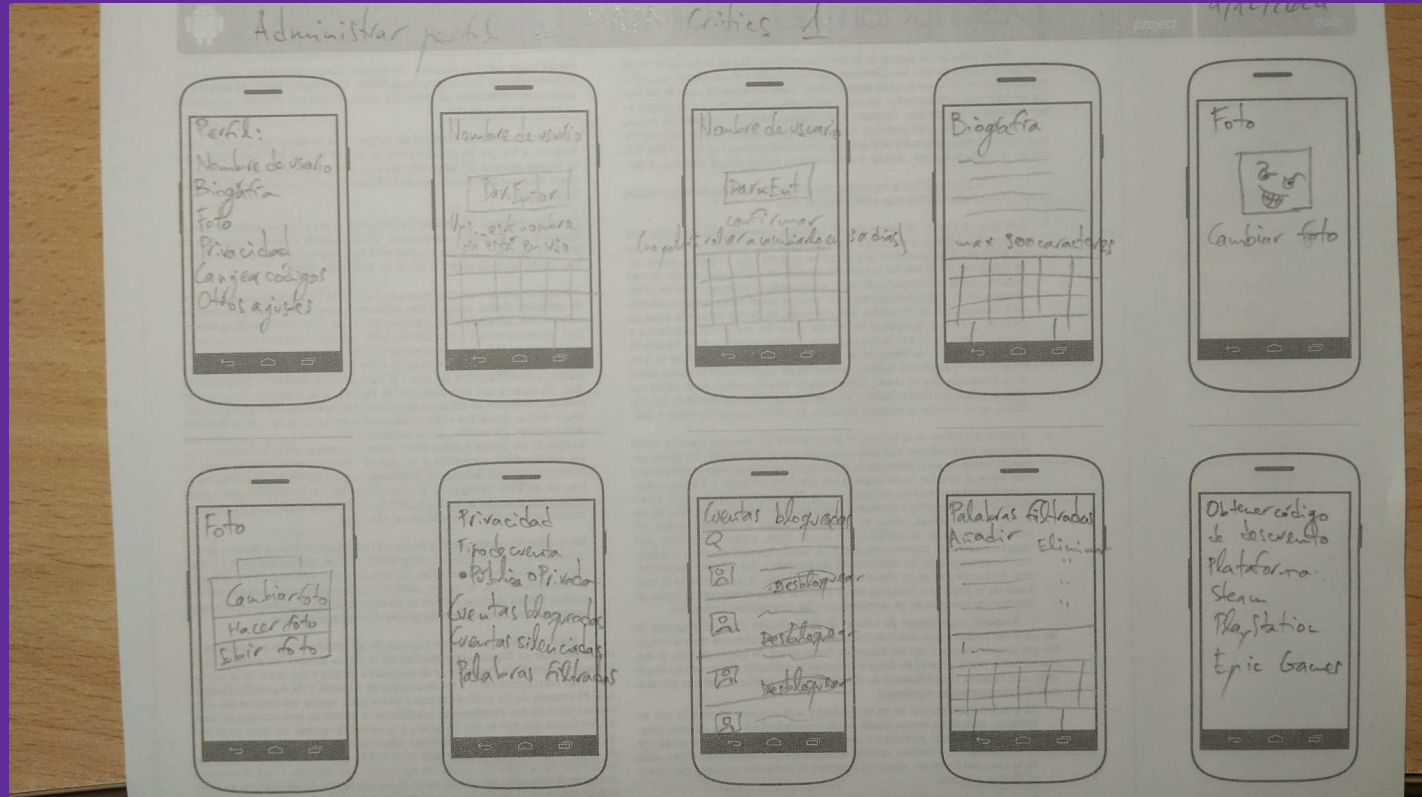 Administrar perfil
Critics 1
project
date
Perfil:
Nombre de usuario
Biografía
Foto
Privacidad
Canjear códigos
Otros ajustes
Nombre de usuario
este nombre
ya está en uso
Nombre de usuario
DarkEut
confirmar
(no podrás volver a cambiarlo en 30 días)
Biografía
max 300 caracteres
Foto
Cambiar foto
Foto
Cambiar foto
Hacer foto
Subir foto
Privacidad
Tipo de cuenta
Pública Privada
Cuentas bloqueadas
Cuentas silenciadas
Palabras filtradas
Cuentas bloqueadas
Desbloquear
Desbloquear
Desbloquear
Palabras filtradas
Añadir Eliminar
Obtener código
de descuento
Plataforma
Steam
PlayStation
Epic Games